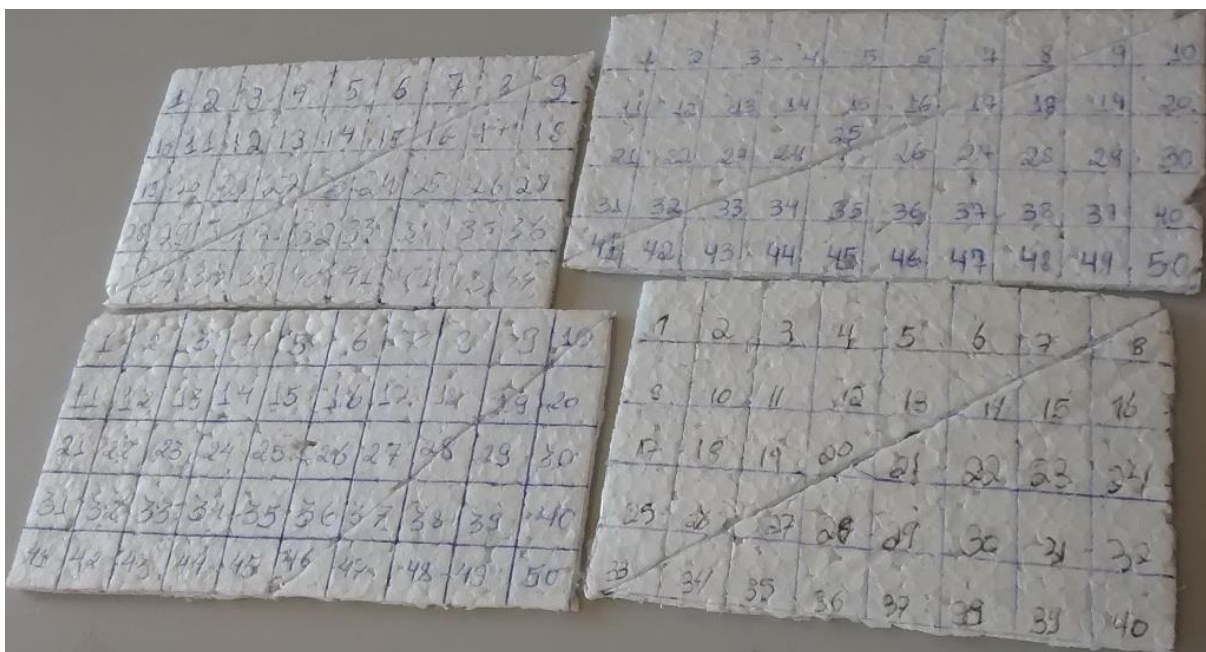 1 2 3 4 5 6 7 8 9
10 11 12 13 14 15 16 17 18
19 20 21 22 23 24 25 26 27
28 29 31 32 33 34 35 36
37 38 39 40 41 42 43 44
1 2 3 4 5 6 7 8 9 10
11 12 13 14 15 16 17 18 19 20
21 22 23 24 25 26 27 28 29 30
31 32 33 34 35 36 37 38 39 40
41 42 43 44 45 46 47 48 49 50
1 2 3 4 5 6 7 8 9 10
11 12 13 14 15 16 17 18 19 20
21 22 23 24 25 26 27 28 29 30
31 32 33 34 35 36 37 38 39 40
41 42 43 44 45 46 47 48 49 50
1 2 3 4 5 6 7 8
9 10 11 12 13 14 15 16
17 18 19 20 21 22 23 24
25 26 27 28 29 30 31 32
33 34 35 36 37 38 39 40